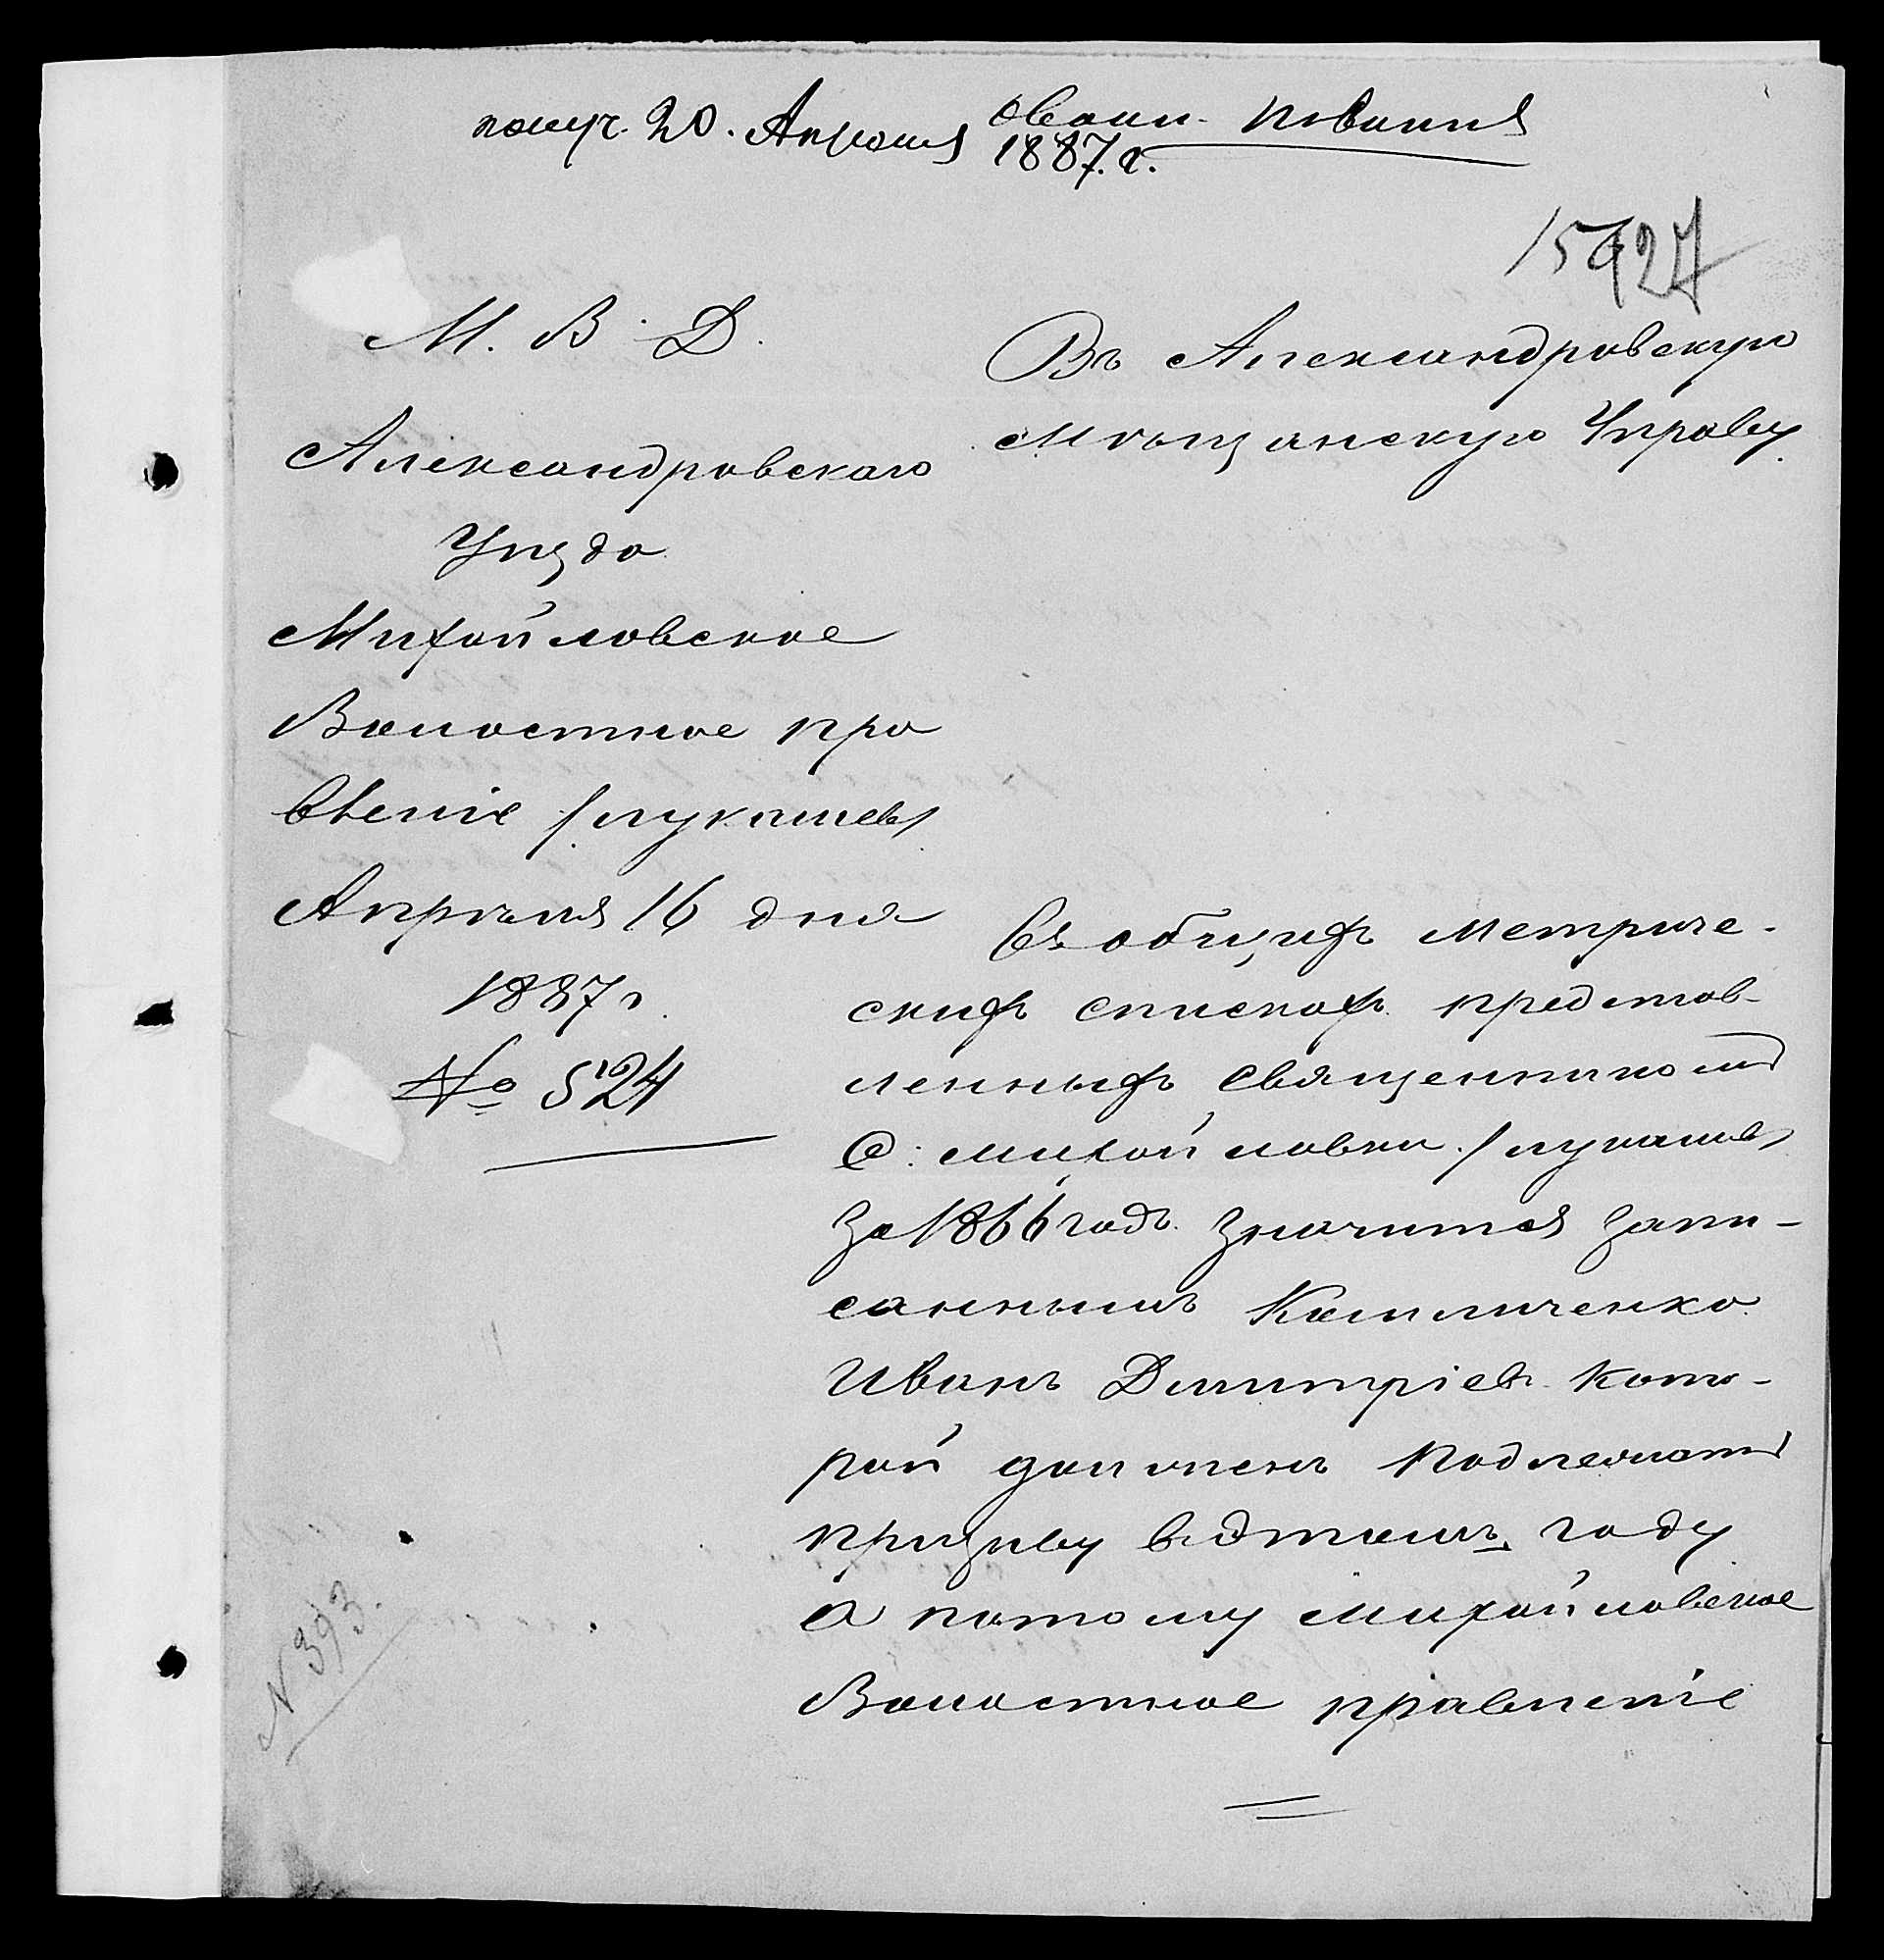 получ. 20. Апреля 1887. г.
О воин. повинн
М. В. Д.
Александровскаго
Уѣзда
Михайловское
Волостное пра
вленіе /лукашев/
Апрѣля 16 дня
1887 г.
№ 524
Въ Александровскую
Мѣщанскую Управу.
Въ общихъ метриче-
скихъ спискахъ представ-
ленныхъ Священникомъ
С: михайловки /лукашев/
За 1866 годъ значится запи-
саннымъ
Иванъ Димитріевъ кото-
рой долженъ подлежать
призыву въ этомъ году
а потому михайловское
Волостное правленіе
N 393.